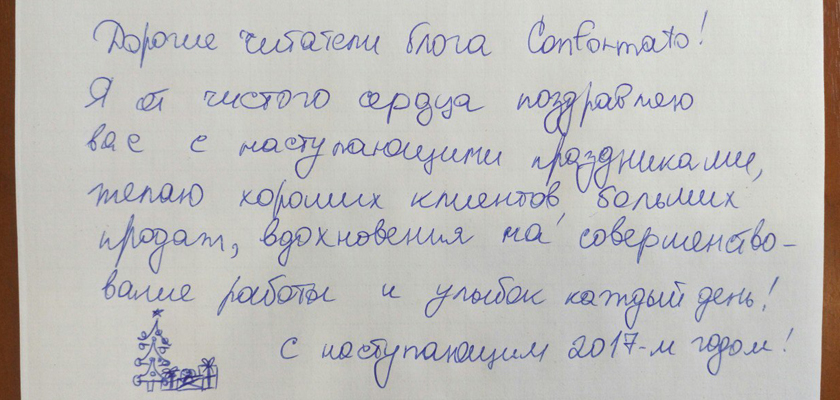 Дорогие читатели блога Conformato!
Я от чистого сердца поздравляю
вас с наступающими праздниками,
желаю хороших клиентов, больших
продаж, вдохновения на совершенство-
вание работы и улыбок каждый день!
С наступающим 2017-м годом!